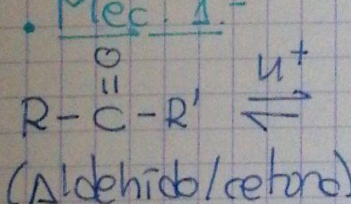 • Mec. 1.-
O
||
R - C - R' ⇌ H⁺
(Aldehido/cetona)